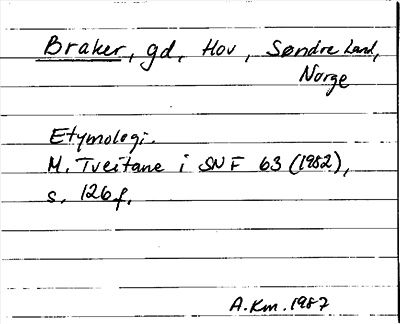 Braker, gd, Hov, Søndre Land,
Norge
Etymologi.
M. Tveitane i SNF 63 (1982),
s. 126f.
A.Km. 1987